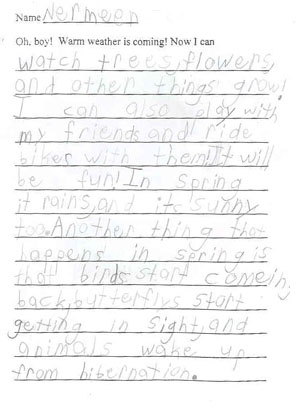 Name Nermeen
Oh, boy! Warm weather is coming! Now I can
watch trees, flowers,
and other things grow!
I can also play with
my friends and ride
bikes with them! It will
be fun! In spring
it rains, and its sunny
too. Another thing that
happens in spring is
that birds start comeing
back, butterflys start
getting in sight, and
animals wake up
from hibernation.